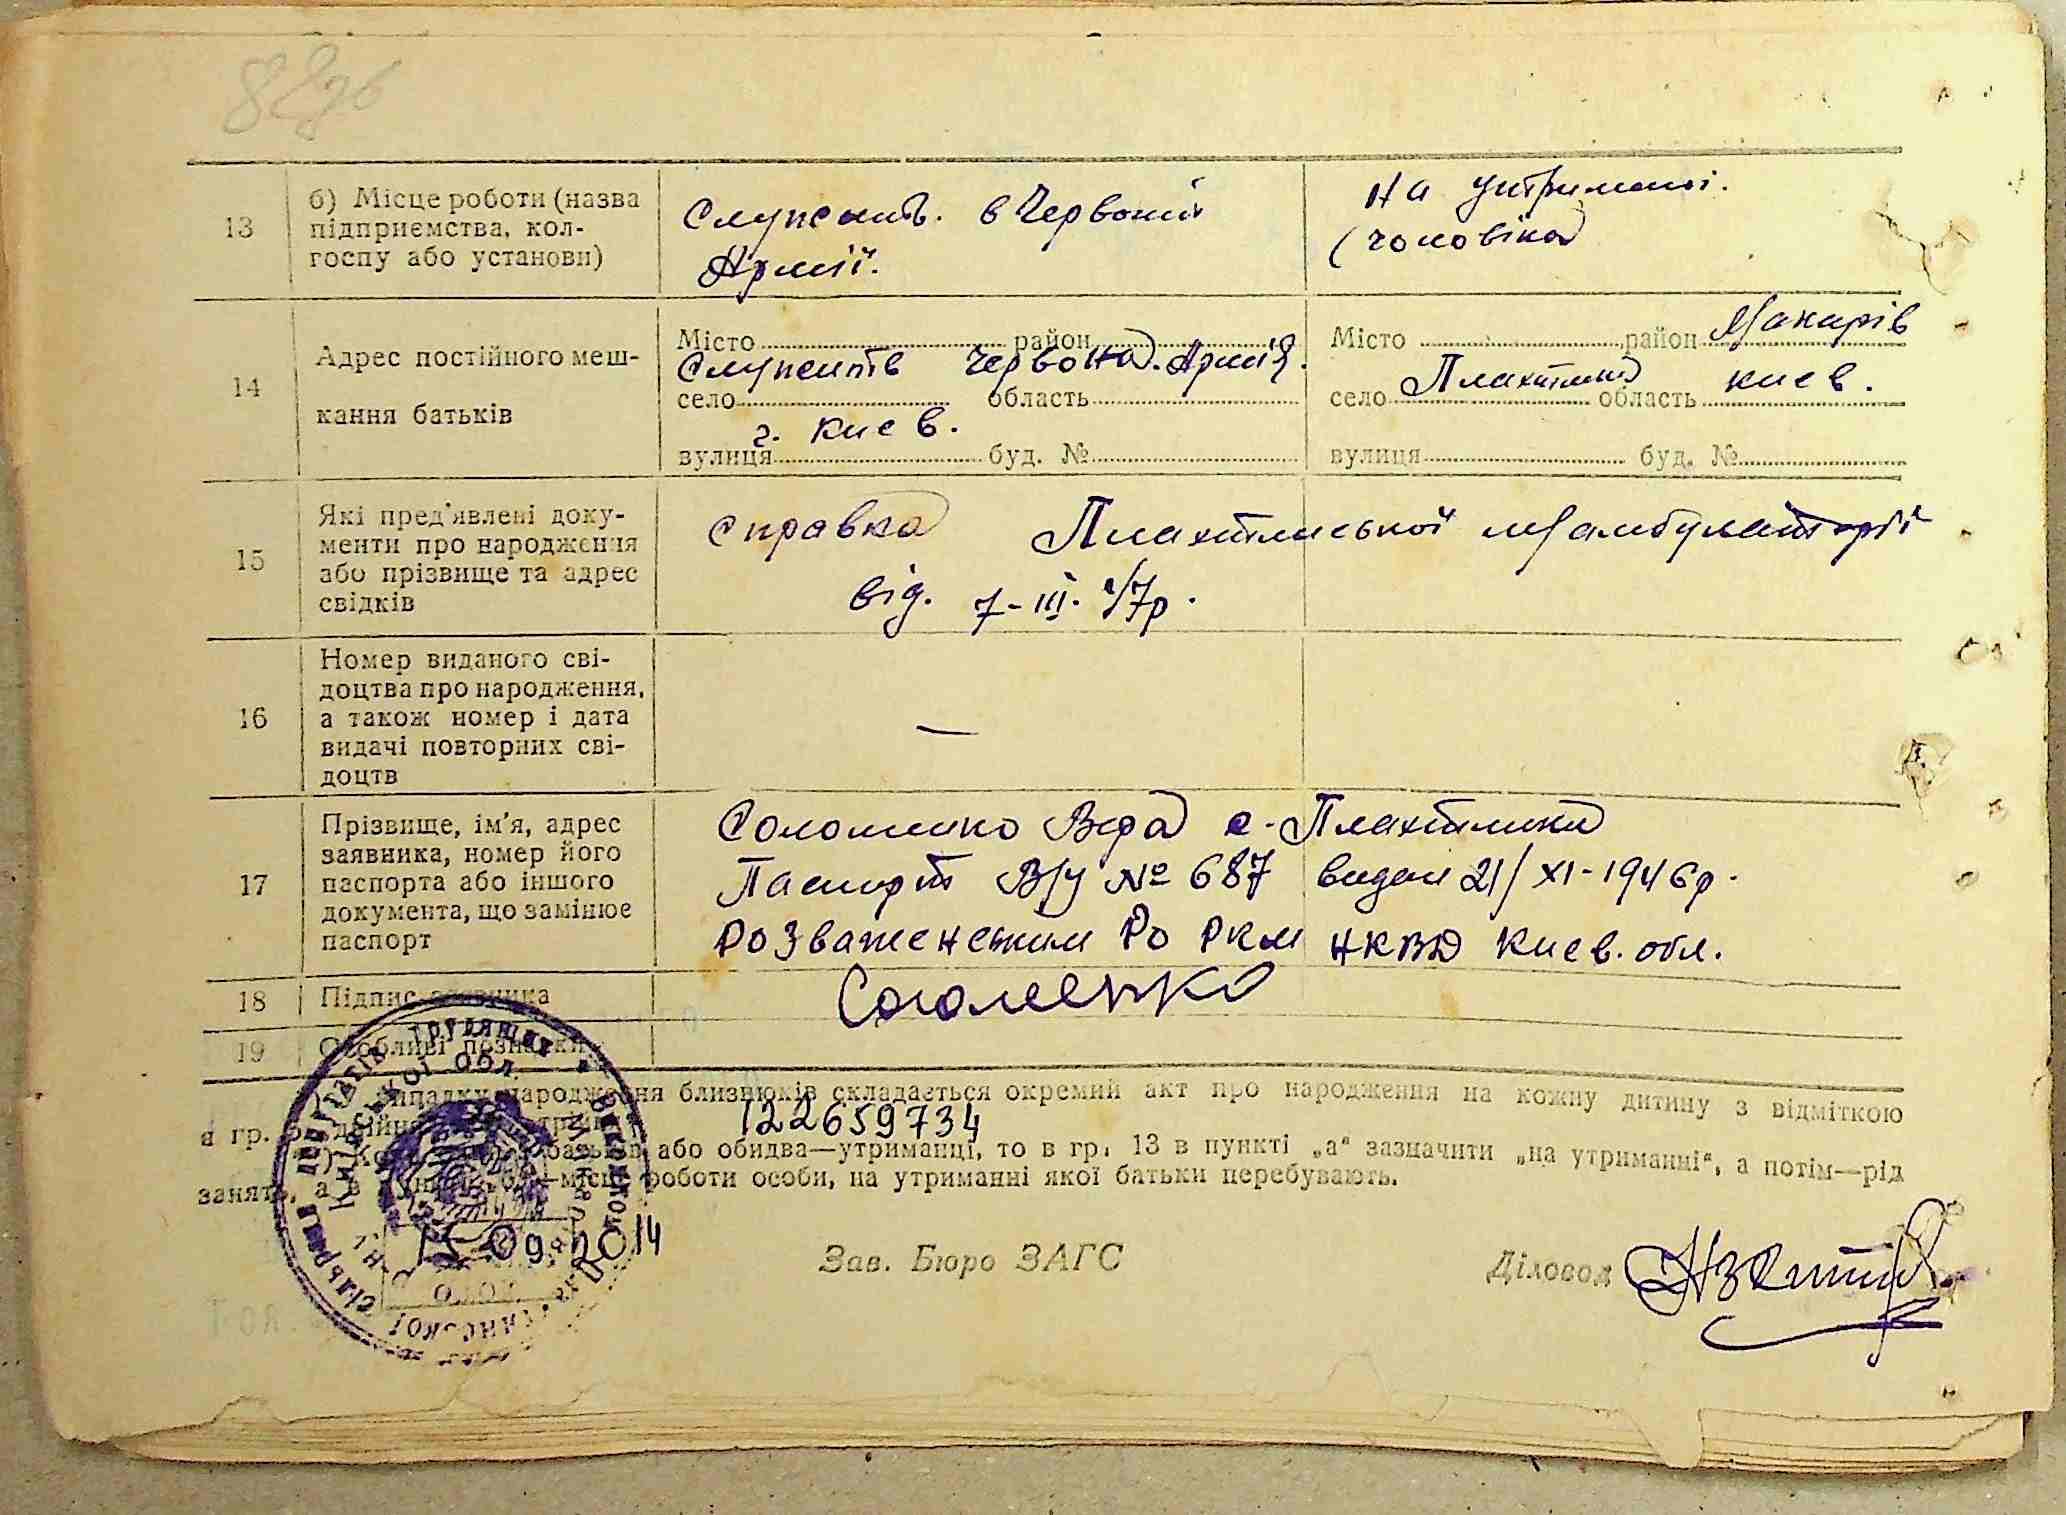 13
б) Місце роботи (назва
підприємства, кол-
госпу або установи)
Служить. в Червоній
Армії.
На утриманні.
(чоловіка)
14
Адрес постійного меш-
кання батьків
Місто район
Служить Червона. Армія.
село область
г. Киев.
вулиця буд. №
Місто район Макарів
село область Киев.
вулиця буд. №
15
Які пред'явлені доку-
менти про народження
або прізвище та адрес
свідків
Справка Плахтянської
від. 7-III. 47р.
16
Номер виданого сві-
доцтва про народження,
а також номер і дата
видачі повторних сві-
доцтв
—
17
Прізвище, ім'я, адрес
заявника, номер його
паспорта або іншого
документа, що замінює
паспорт
Віра с.
Паспорт № 687 видан 21/XI-1946р.
РО РКМ НКВД Киев. обл.
18
Підпис заявника
19
Особливі познаки
випадку народження близнюків складається окремий акт про народження на кожну дитину з відміткою
в гр.
122659734
або обидва—утриманці, то в гр. 13 в пункті „а“ зазначити „на утриманні“, а потім—рід
занять, а в місце роботи особи, на утриманні якої батьки перебувають.
Київської обл.
15 09 2014
Зав. Бюро ЗАГС
Діловод